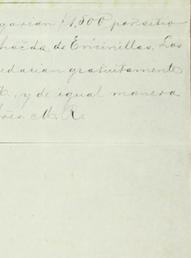 garán $1,500 por sitio
hacda de Encinillas. Los
edarian gratuitamente
y de igual manera